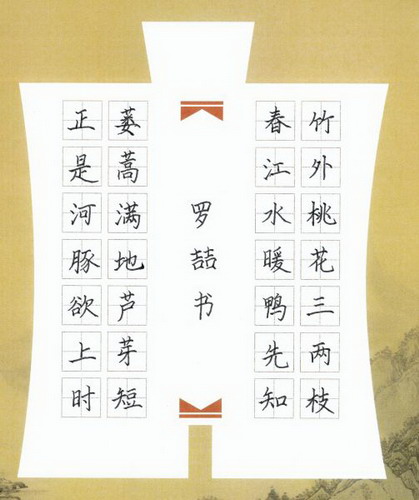 竹外桃花三两枝
春江水暖鸭先知
罗喆书
蒌蒿满地芦芽短
正是河豚欲上时